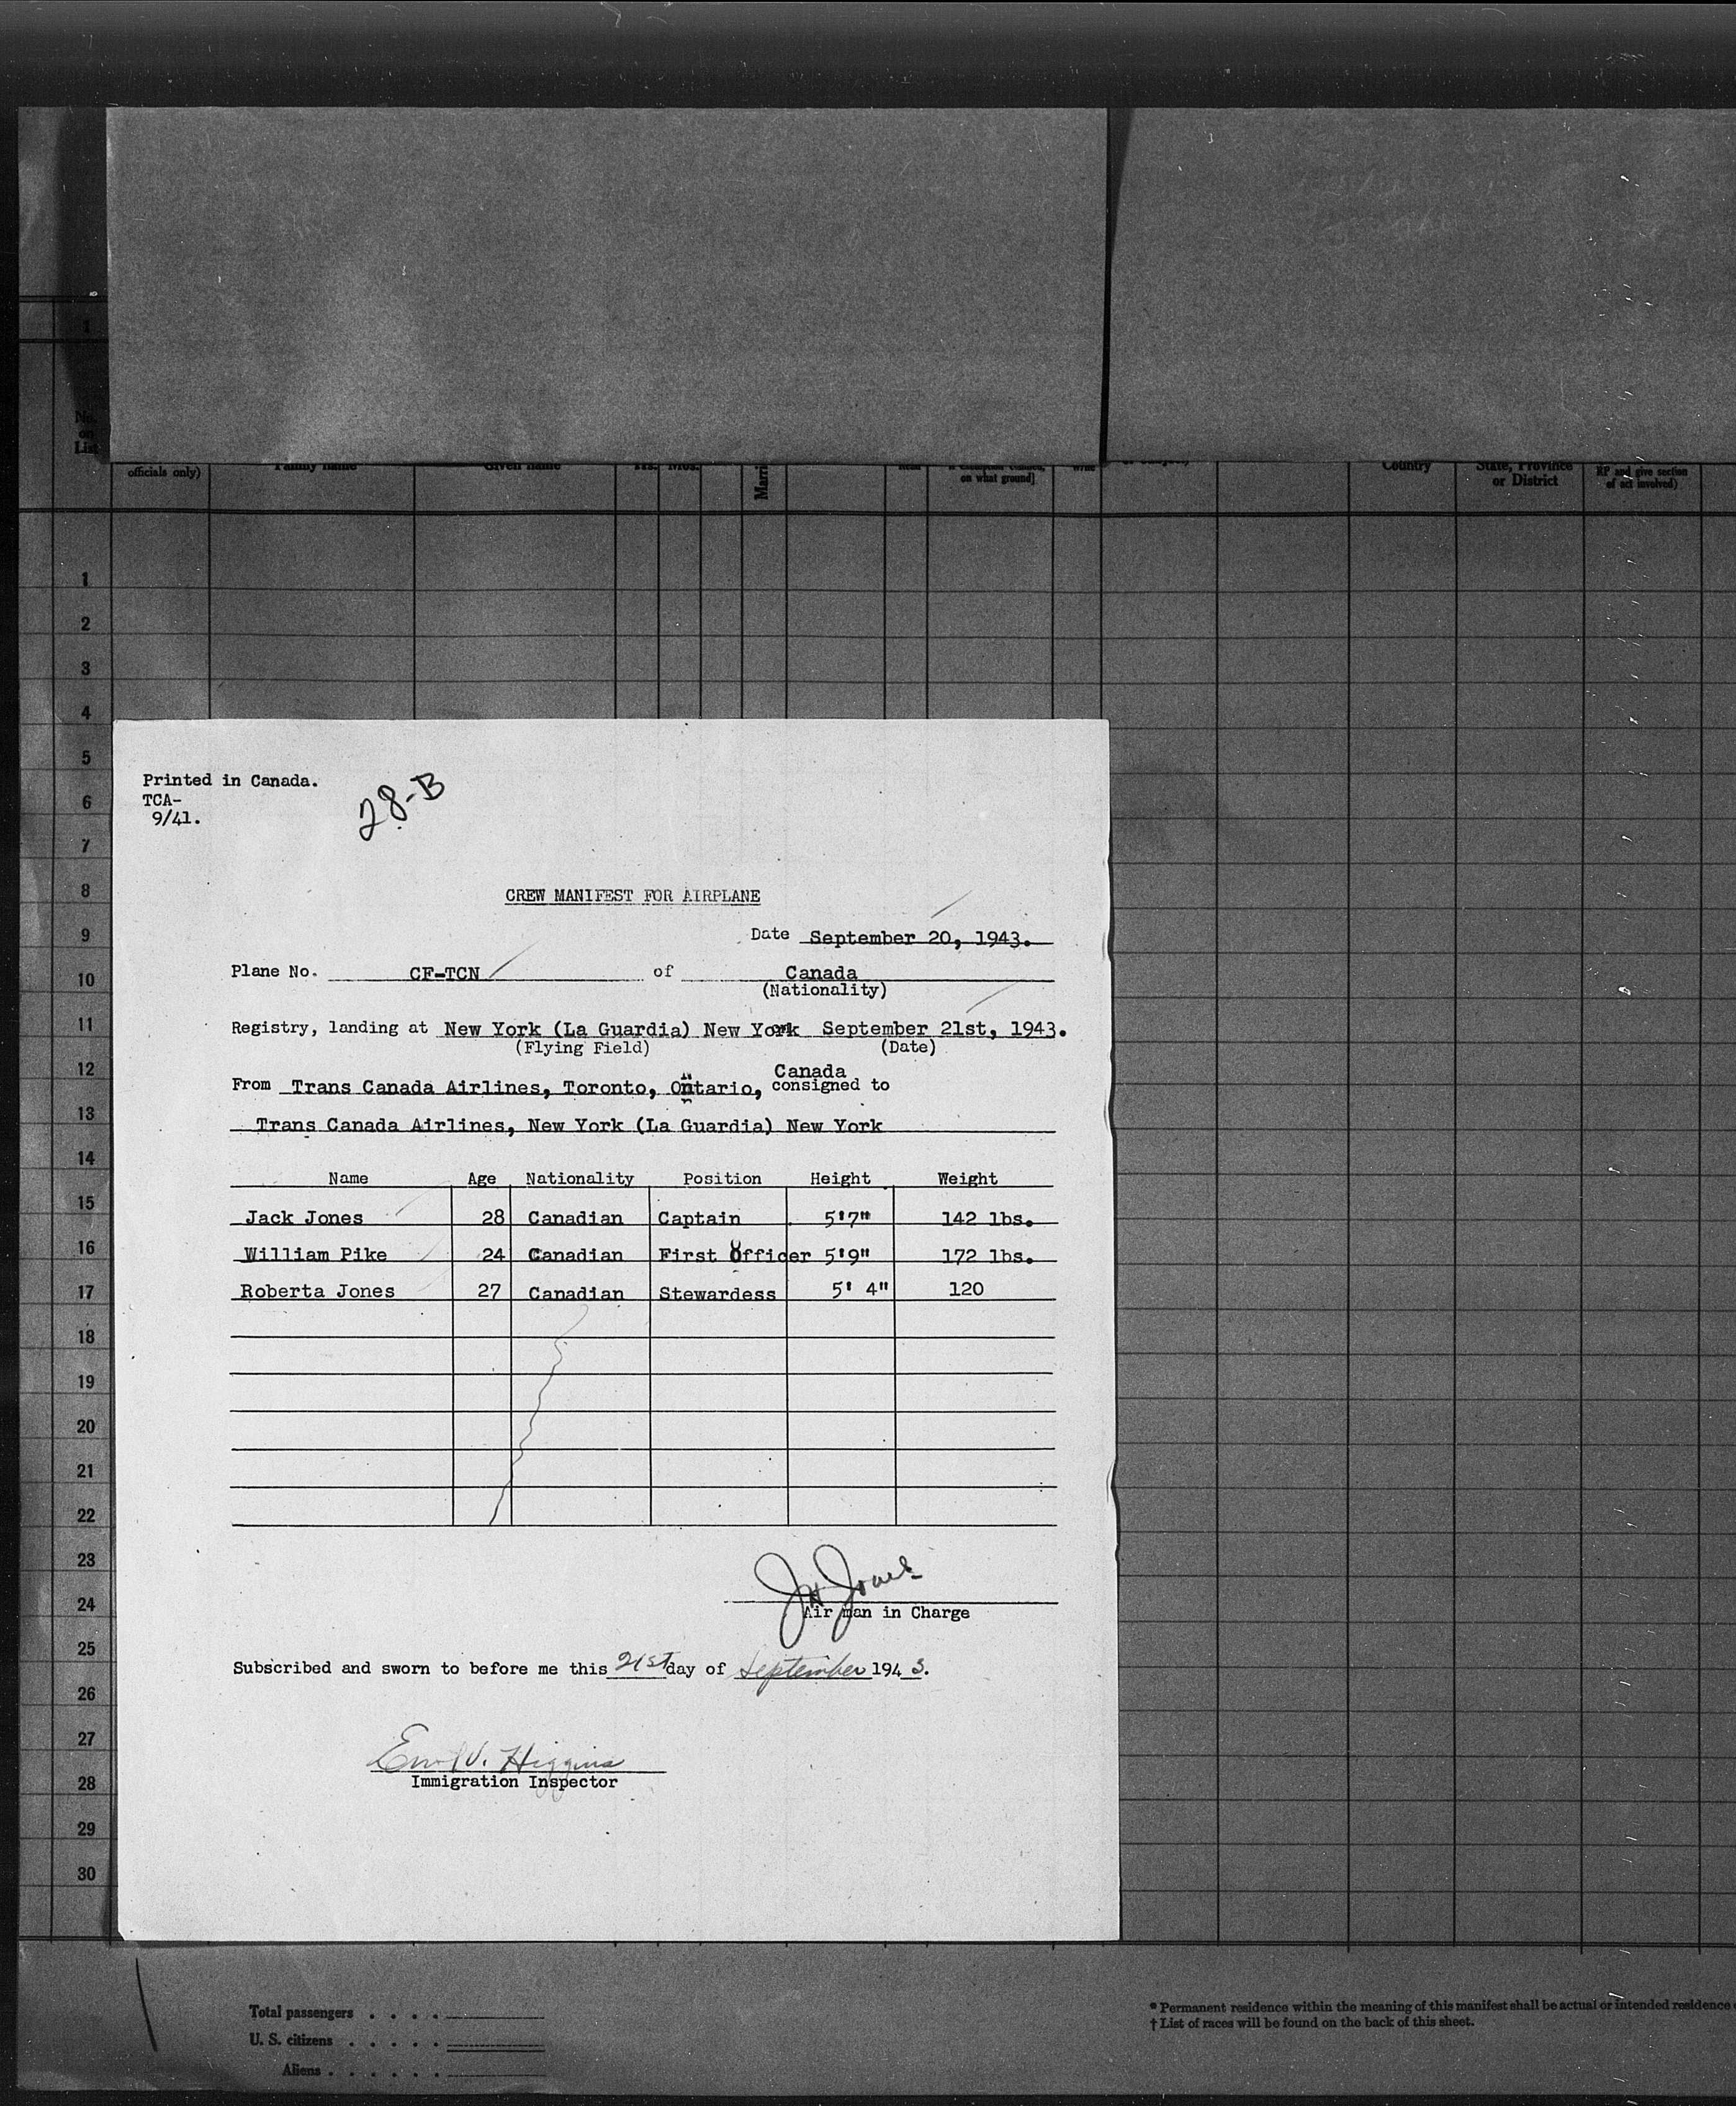 1
No.
on
List
officials only)
Family name
Given name
Yrs. Mos.
Marri
Read
on what ground]
Write
Country
State, Province
or District
RP and give section
of act involved)
1
2
3
4
5
6
7
8
9
10
11
12
13
14
15
16
17
18
19
20
21
22
23
24
25
26
27
28
29
30
Printed in Canada.
TCA-
9/41.
28-B
CREW MANIFEST FOR AIRPLANE
Date September 20, 1943.
Plane No. CF-TCN of Canada
(Nationality)
Registry, landing at New York (La Guardia) New York on September 21st, 1943.
(Flying Field) (Date)
Canada
From Trans Canada Airlines, Toronto, Ontario, consigned to
Trans Canada Airlines, New York (La Guardia) New York
Name Age Nationality Position Height Weight
Jack Jones 28 Canadian Captain 5'7" 142 lbs.
William Pike 24 Canadian First Officer 5'9" 172 lbs.
Roberta Jones 27 Canadian Stewardess 5' 4" 120
JH Jones
Air man in Charge
Subscribed and sworn to before me this 21st day of September 1943.
V. Higgins
Immigration Inspector
Total passengers . . . .
U. S. citizens . . . . .
Aliens . . . . . .
* Permanent residence within the meaning of this manifest shall be actual or intended residence
† List of races will be found on the back of this sheet.